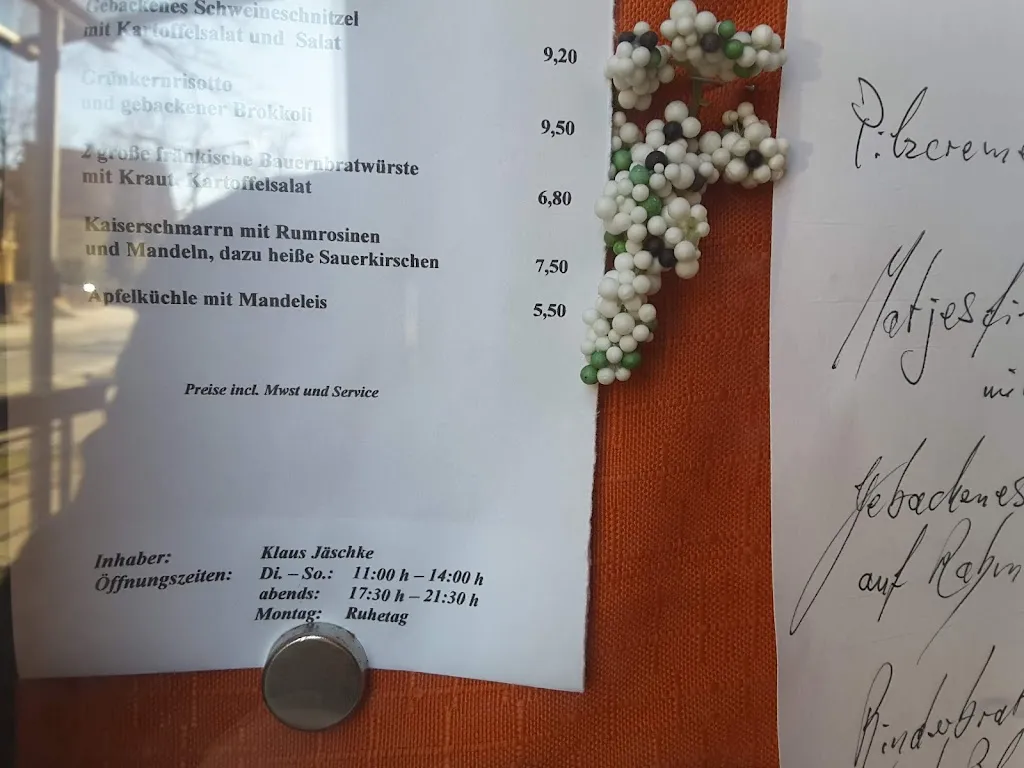 Gebackenes Schweineschnitzel
mit Kartoffelsalat und Salat
9,20
Grünkernrisotto
und gebackener Brokkoli
9,50
2 große fränkische Bauernbratwürste
mit Kraut, Kartoffelsalat
6,80
Kaiserschmarrn mit Rumrosinen
und Mandeln, dazu heiße Sauerkirschen
7,50
Apfelküchle mit Mandeleis
5,50
Preise incl. Mwst und Service
Inhaber: Klaus Jäschke
Öffnungszeiten: Di. – So.: 11:00 h – 14:00 h
abends: 17:30 h – 21:30 h
Montag: Ruhetag
Pilzcreme
Matjesfi
mi
Gebackenes
auf Rahm
Rinderbrat